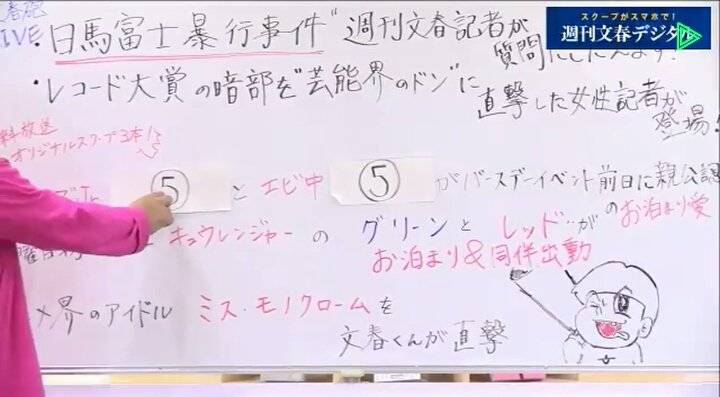 スクープがスマホで!
週刊文春デジタル
春砲
LIVE
・日馬富士暴行事件"週刊文春記者が
質問にこたえます!
・レコード大賞の暗部を"芸能界のドン"に
直撃した女性記者が
登場!
料放送
オリジナルスクープ3本!!
⑤とエビ中⑤がバースデーイベント前日に親公認
のお泊まり愛
曜日
キュウレンジャーのグリーンとレッド…が
お泊まり&同伴出動
メ界のアイドル ミス・モノクロームを
文春くんが直撃